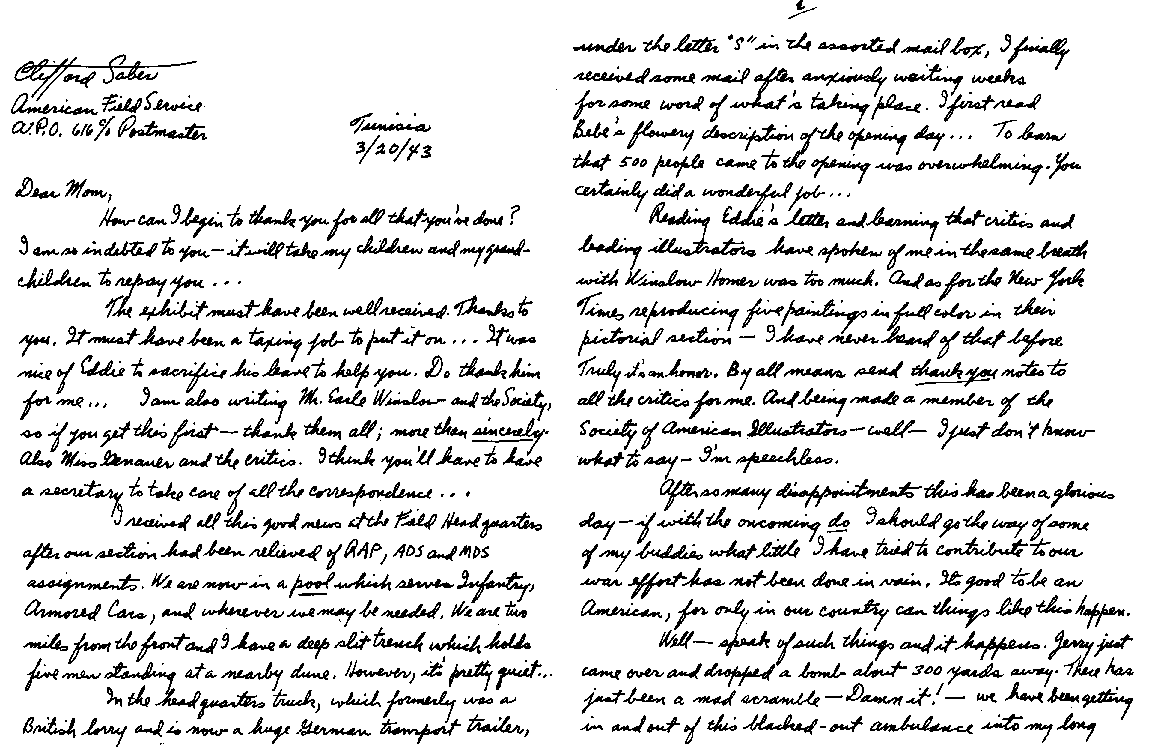 Clifford Saber
American Field Service
A.P.O. 616 % Postmaster
Tunisia
3/20/43
Dear Mom,
How can I begin to thank you for all that you've done?
I am so indebted to you — it will take my children and my grand-
children to repay you ...
The exhibit must have been well received. Thanks to
you. It must have been a taxing job to put it on ... It was
nice of Eddie to sacrifice his leave to help you. Do thank him
for me... I am also writing Mr. Earle Winslow and the Society,
so if you get this first — thank them all; more than sincerely.
Also Miss Genauer and the critics. I think you'll have to have
a secretary to take care of all the correspondence ...
I received all this good news at the Field Headquarters
after our section had been relieved of RAP, ADS and MDS
assignments. We are now in a pool which serves Infantry,
Armored Cars, and wherever we may be needed. We are two
miles from the front and I have a deep slit trench which holds
five men standing at a nearby dune. However, it's pretty quiet...
In the headquarters truck, which formerly was a
British lorry and is now a huge German transport trailer,
2
under the letter "S" in the assorted mail box, I finally
received some mail after anxiously waiting weeks
for some word of what's taking place. I first read
Bebe's flowery description of the opening day... To learn
that 500 people came to the opening was overwhelming. You
certainly did a wonderful job...
Reading Eddie's letter and learning that critics and
leading illustrators have spoken of me in the same breath
with Winslow Homer was too much. And as for the New York
Times reproducing five paintings in full color in their
pictorial section — I have never heard of that before
Truly it's an honor. By all means send thank you notes to
all the critics for me. And being made a member of the
Society of American Illustrators — well — I just don't know
what to say — I'm speechless.
After so many disappointments this has been a glorious
day — if with the oncoming do I should go the way of some
of my buddies what little I have tried to contribute to our
war effort has not been done in vain. It's good to be an
American, for only in our country can things like this happen.
Well — speak of such things and it happens. Jerry just
came over and dropped a bomb about 300 yards away. There has
just been a mad scramble — Damn it! — we have been getting
in and out of this blacked-out ambulance into my long